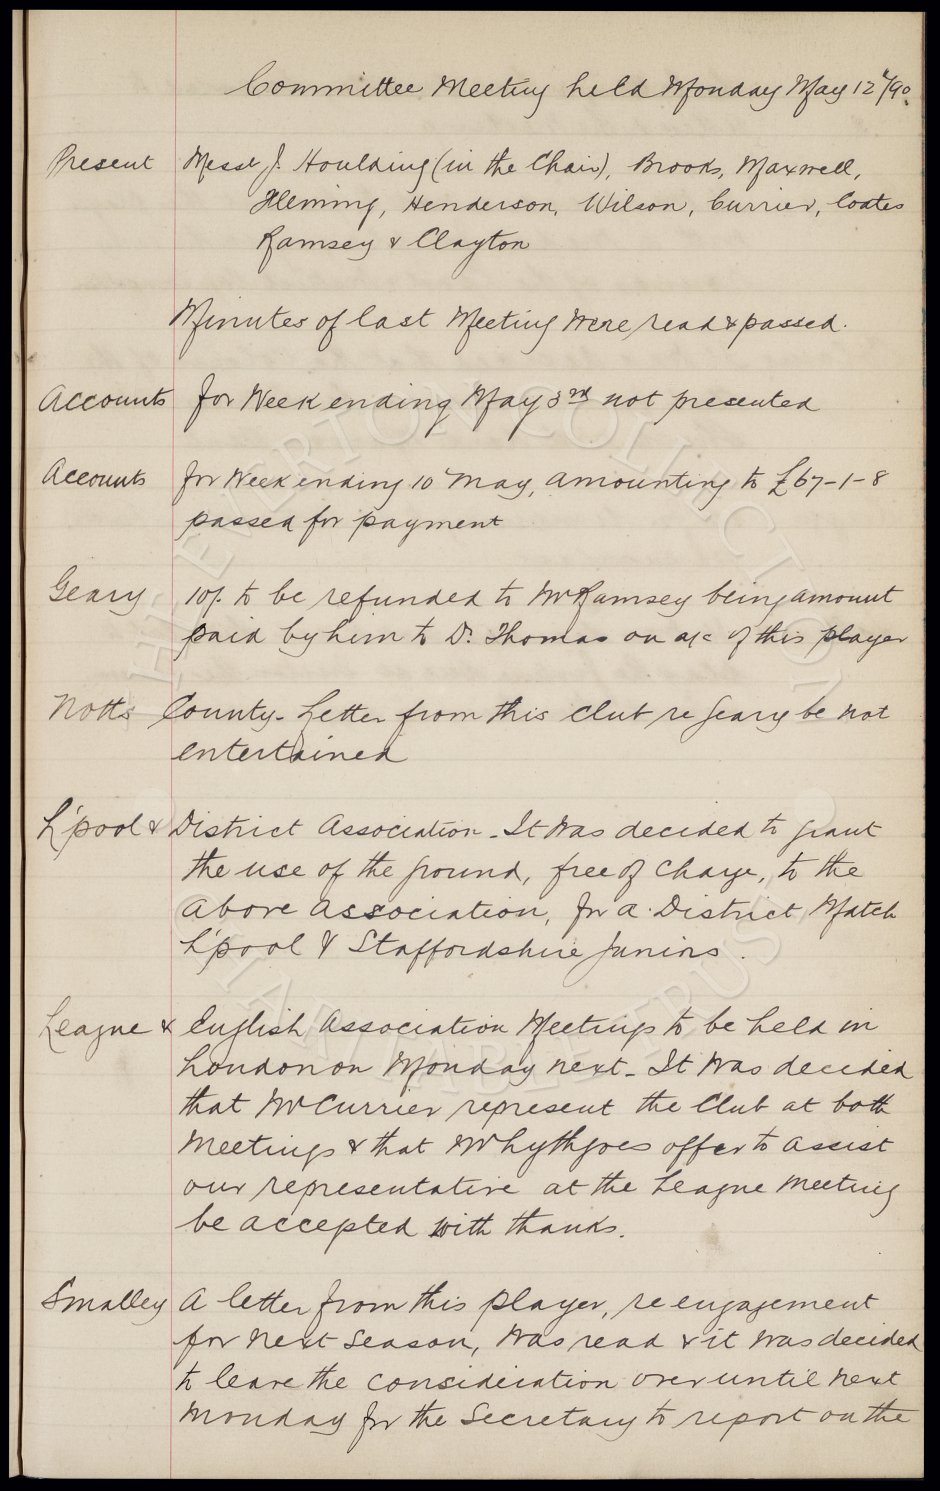 Committee Meeting held Monday May 12th/90.
Present Messrs J. Houlding (in the Chair), Brooks, Maxwell,
Fleming, Henderson, Wilson, Currier, Coates
Ramsey & Clayton
Minutes of last Meeting were read & passed.
Accounts for Week ending May 3rd not presented
Accounts for Week ending 10 May, amounting to £67-1-8
passed for payment
Geary 10/- to be refunded to Mr Ramsey being amount
paid by him to Dr. Thomas on a/c of this player
Notts County - Letter from this club re Geary be not
entertained
L'pool & District Association - It was decided to grant
the use of the ground, free of charge, to the
above association, for a District Match
L'pool & Staffordshire Juniors.
League & English Association Meetings to be held in
London on Monday next - It was decided
that Mr Currier represent the Club at both
Meetings & that Mr Lythgoes offer to assist
our representative at the League Meeting
be accepted with thanks.
Smalley A letter from this player, re engagement
for next season, was read & it was decided
to leave the consideration over until next
Monday for the Secretary to report on the
THE EVERTON COLLECTION
CHARITABLE TRUST